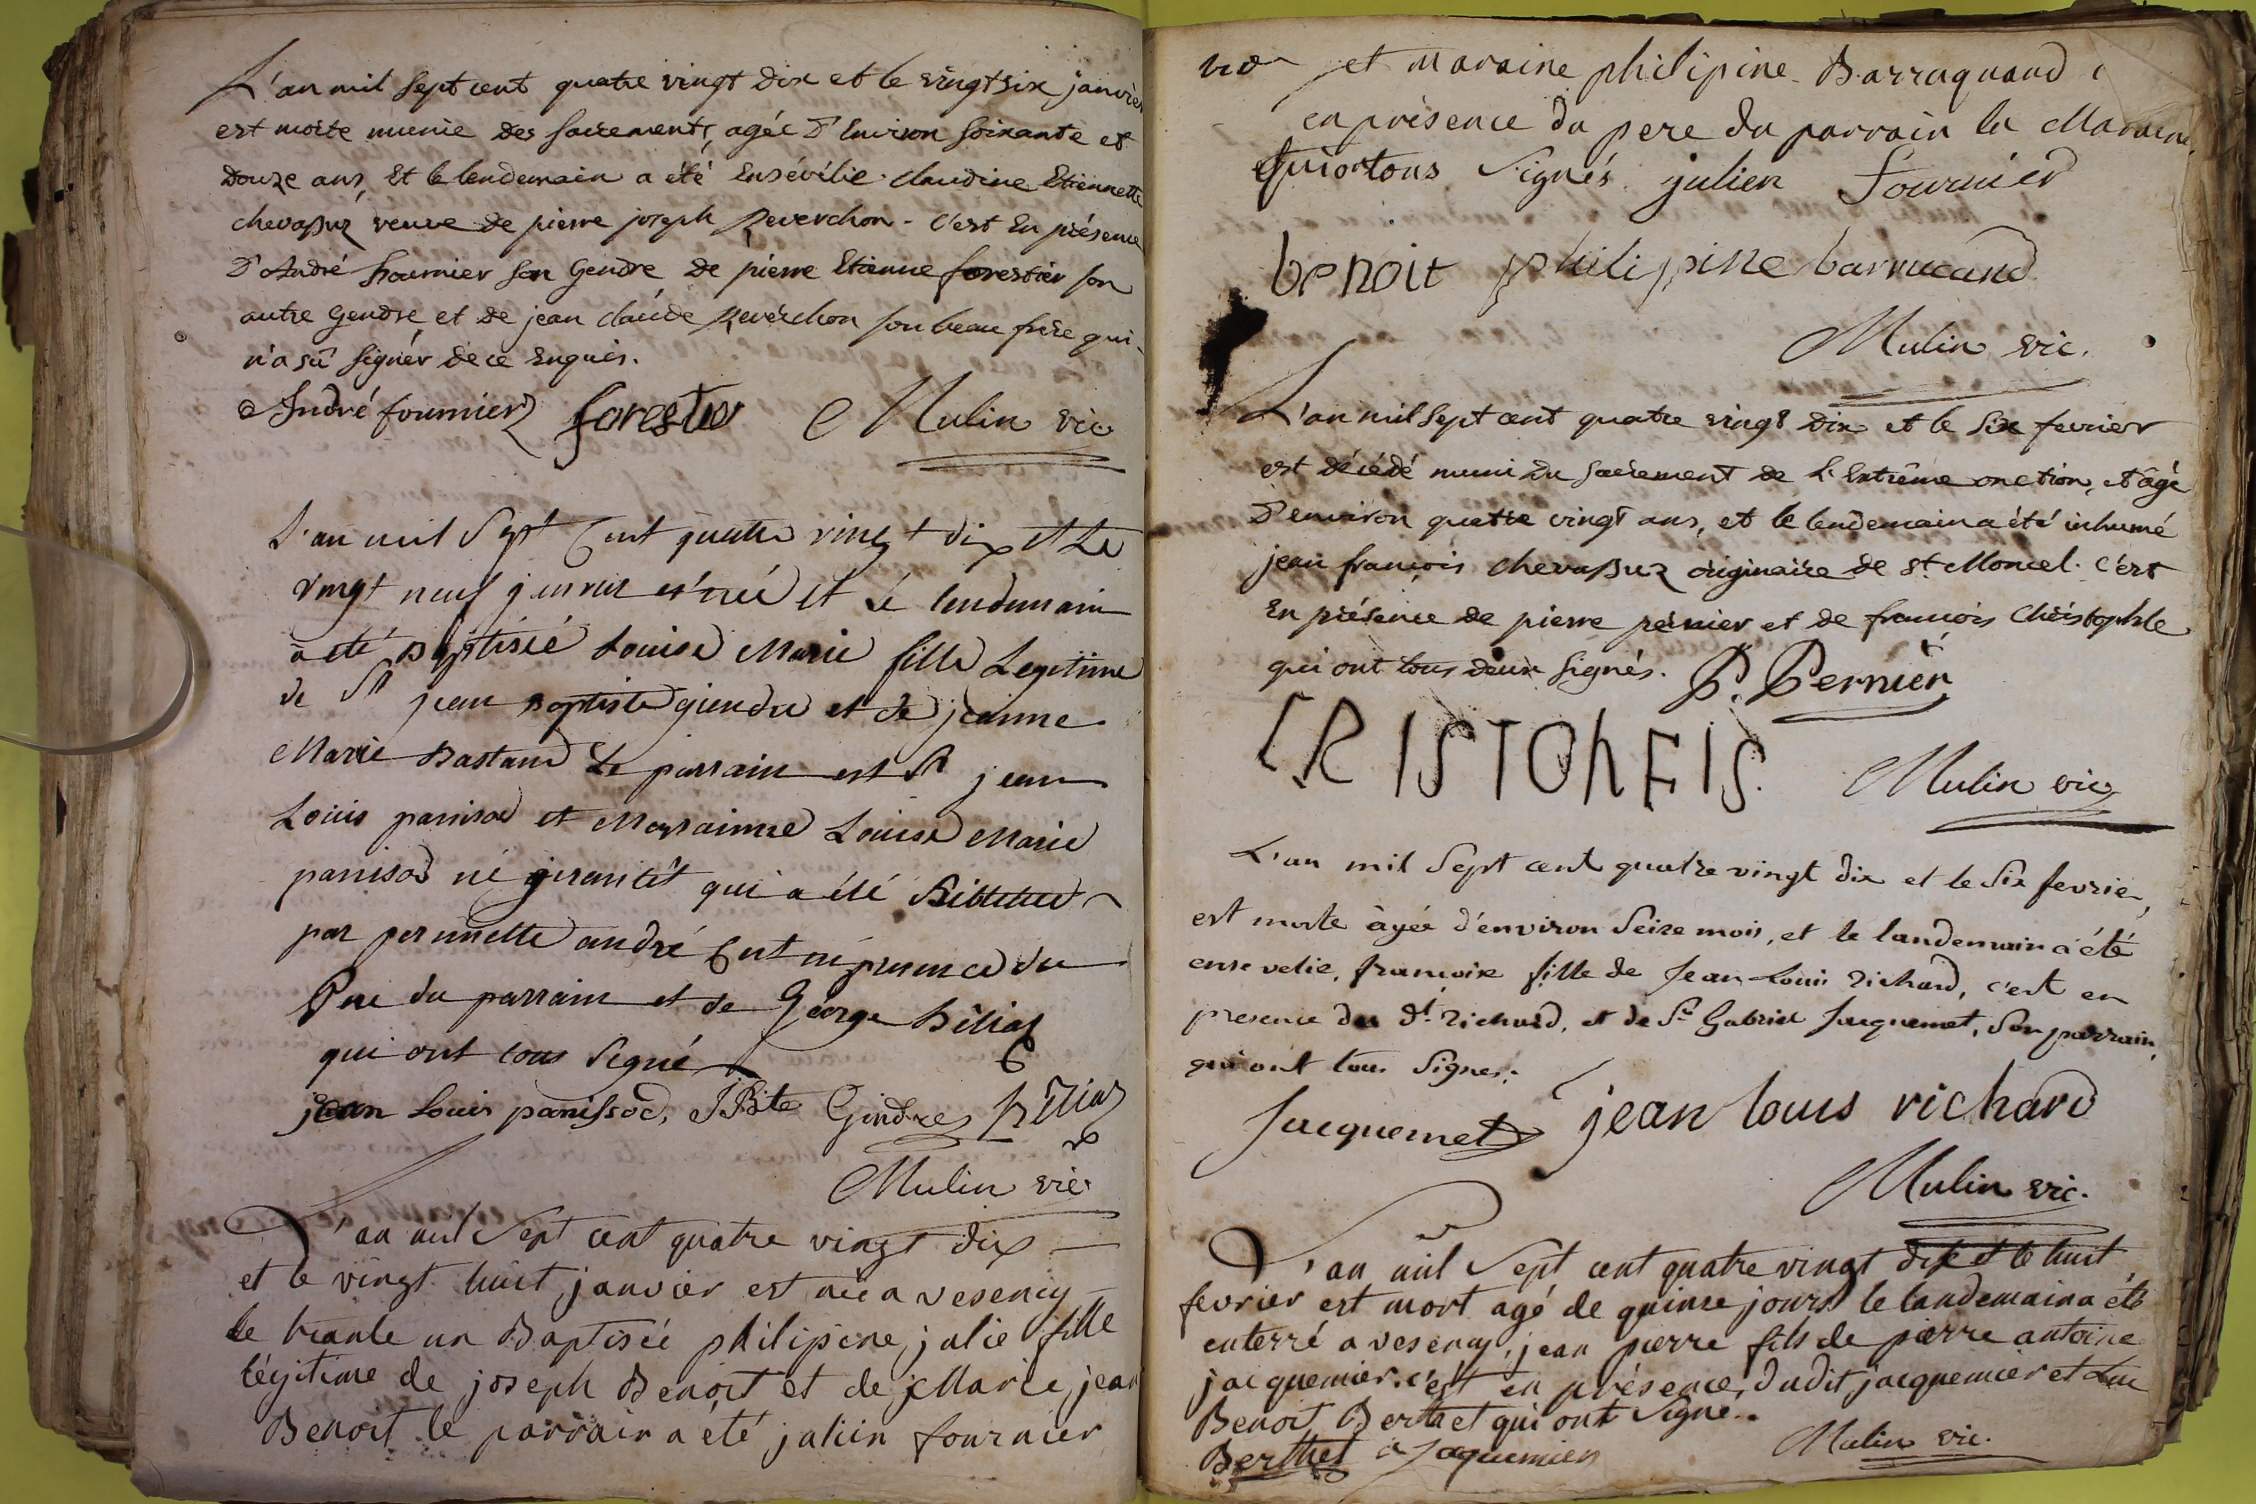 L'an mil sept cent quatre vingt dix et le vingt six janvier
est morte munie des sacrements, agée d'Environ soixante et
douze ans, Et le lendemain a été Ensévélie. Claudine Etiennette
chevassuz veuve de pierre joseph Reverchon - C'est En présence
D'André fournier son Gendre de pierre Etienne forestier son
autre Gendre et de jean claude Reverchon son beau frere qui
n'a sû signér de ce Enquis.
André fournier forestier Mulin vic
L'an mil Sept Cent quatre vingt dix et Le
vingt neuf janvier est née et Le lendemain
a eté Baptisée Louise Marie fille Legitime
de Sr jean Baptiste giendre et de jeanne
Marie Bastand Le parrain est Sr jean
Louis panisod et Marrainne Louise Marie
panisod né qui a été
par pernnette andré C'est en presence du
Pere du parrain et de George hélias
qui ont tous Signé
jean Louis panissod, JBte Gindre hélias
Mulin vic
L'an mil Sept cent quatre vingt dix
et le vingt huit janvier est née a vesency
le trante un Baptisée philipine julie fille
légitime de joseph Benoit et de Marie jean
Benoit le parrain a eté julien fournier
et maraine philipine Barruquand
en présence du pere du parrain la Maraine
qui ont tous Signés. julien fournier
benoit philippine barrucand
Mulin vic.
L'an mil sept cent quatre vingt dix et le six fevrier
est décédé muni du sacrement de l'Extrême onction, et âgé
d'environ quatre vingt ans, et le lendemain a été inhumé
jean françois chevassuz originaire de St. Moncel. C'est
En présence de pierre pernier et de françois Christophle
qui ont tous deux signés. P. Pernier
CRISTOhFIS.
Mulin vic
L'an mil Sept cent quatre vingt dix et le Six fevrier,
est morte âgée d'environ Seize mois, et le landemain a été
ensevelie, françoise fille de Jean-Louis Richard, c'est en
presence du dt. Richard, et de Sr Gabriel Jacquemet, Son parrain,
qui ont tous Signes.
Jacquemet jean louis richard
Mulin vic.
L'an mil Sept cent quatre vingt dix et le huit
fevrier est mort agé de quinse jours le landemain a été
enterré a vesency, jean pierre fils de pierre antoine
jacquemier. c'est en présence, dudit jacquemier et Luc
Benoit Berthet qui ont Signé.
Berthet a Jaquemier
Mulin vic.